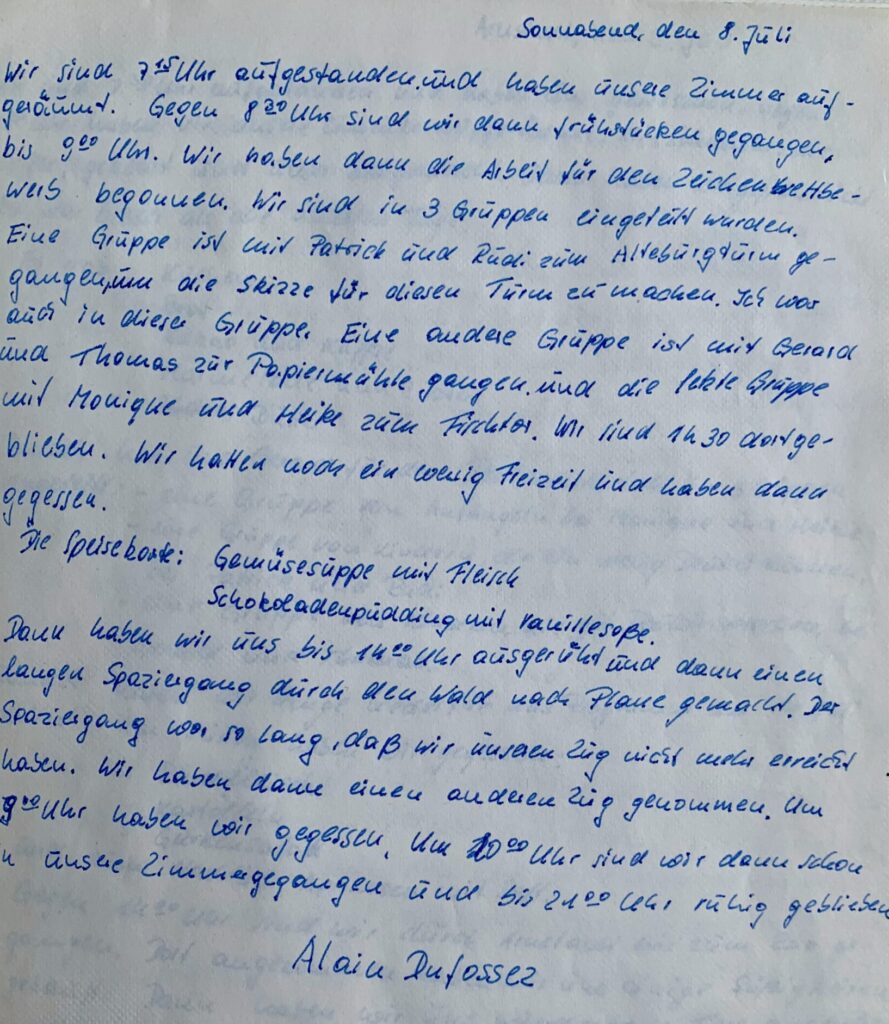 Sonnabend, den 8. Juli
Wir sind 7¹⁵ Uhr aufgestanden und haben unsere Zimmer auf-
geräumt. Gegen 8³⁰ Uhr sind wir dann frühstücken gegangen,
bis 9⁰⁰ Uhr. Wir haben dann die Arbeit für den Zeichenwettbe-
werb begonnen. Wir sind in 3 Gruppen eingeteilt wurden.
Eine Gruppe ist mit Patrick und Rudi zum Alteburgturm ge-
gangen, um die Skizze für diesen Turm zu machen. Ich war
auch in dieser Gruppe. Eine andere Gruppe ist mit Gerard
und Thomas zur Papiermühle gangen und die letzte Gruppe
mit Monique und Heike zum Fischtor. Wir sind 1h 30 dort ge-
blieben. Wir hatten noch ein wenig Freizeit und haben dann
gegessen.
Die Speisekarte: Gemüsesuppe mit Fleisch
Schokoladenpudding mit Vanillesoße.
Dann haben wir uns bis 14⁰⁰ Uhr ausgeruht und dann einen
langen Spaziergang durch den Wald nach Plaue gemacht. Der
Spaziergang war so lang, daß wir unseren Zug nicht mehr erreicht
haben. Wir haben dann einen anderen Zug genommen. Um
Uhr haben wir gegessen. Um 20⁰⁰ Uhr sind wir dann schon
in unsere Zimmer gegangen und bis 21⁰⁰ Uhr ruhig geblieben
Alain Dufossez